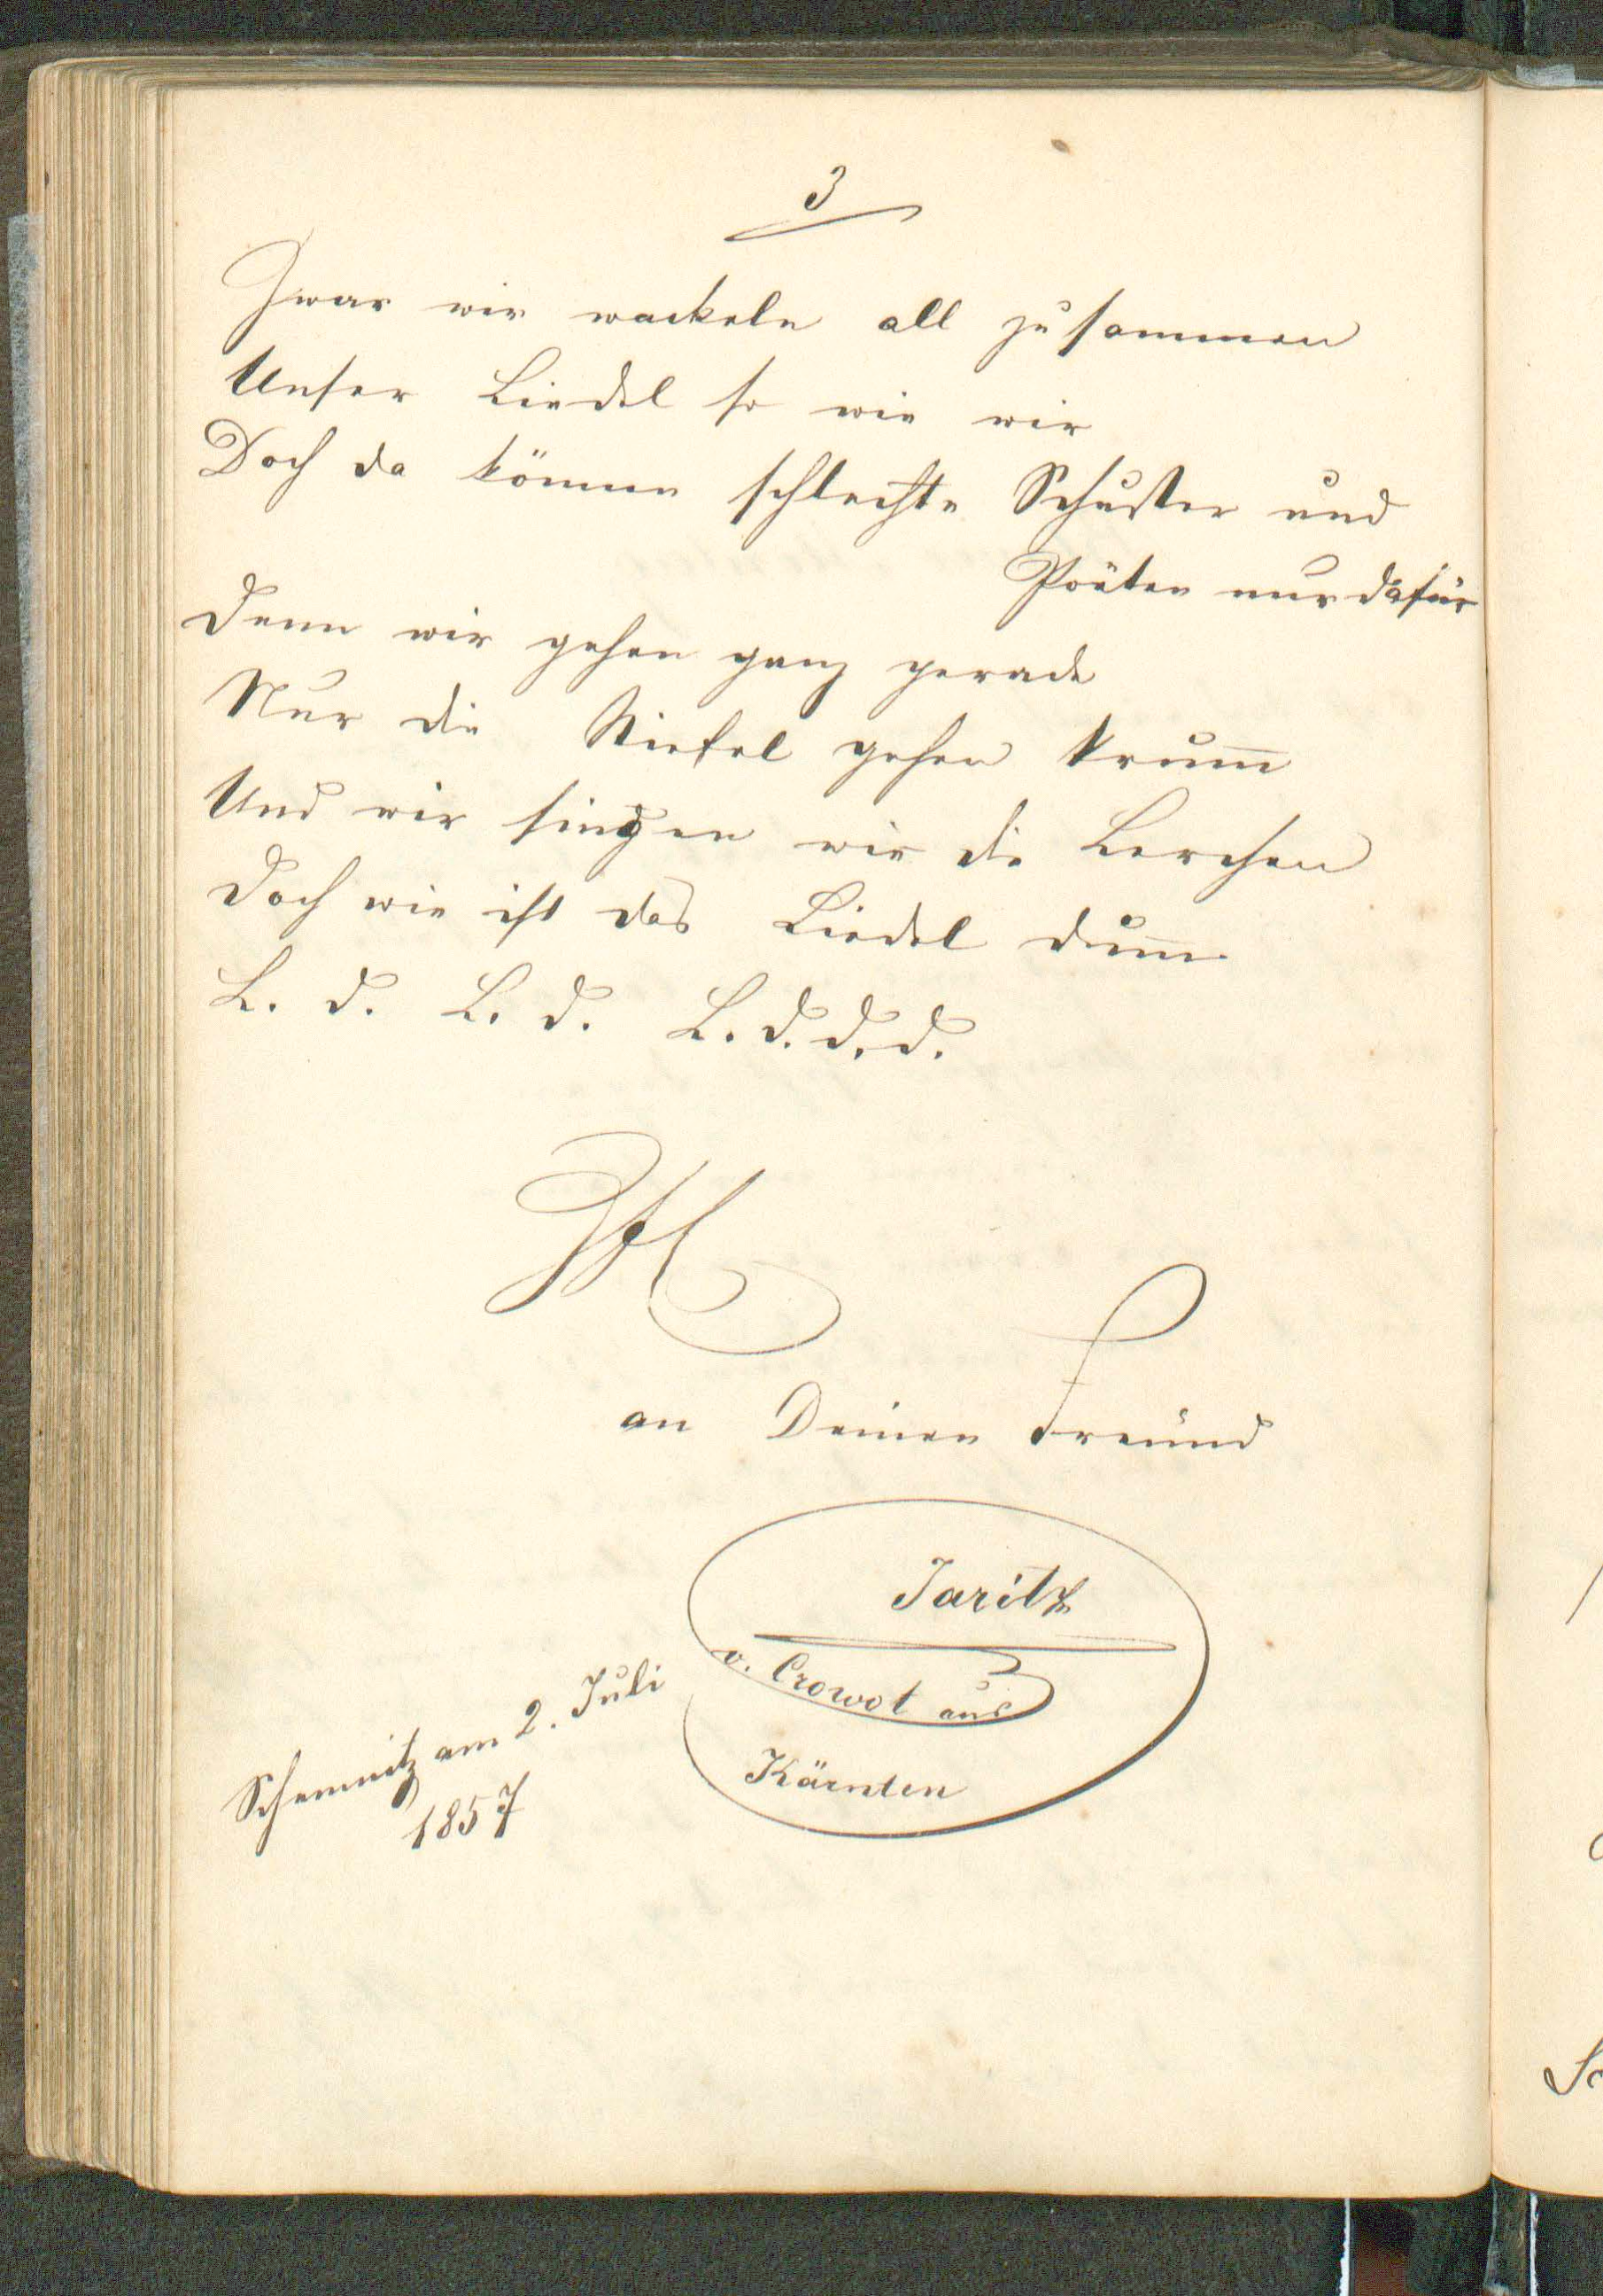 3
Zwar wir wackeln all zusammen
Unser Liedel so wie wir
Doch da können schlechte Schuster und
Poëten nur dafür
Denn wir gehen ganz gerade
Nur die Stiefel gehen krum̅
Und wir singen wie die Lerchen
Doch wie ist das Liedel dum̅.
L. d. L. d. L. d. d. d.
an Deinen Freund
Jaritz
v. Crowot aus
Kärnten
Schemnitz am 2. Juli
1857